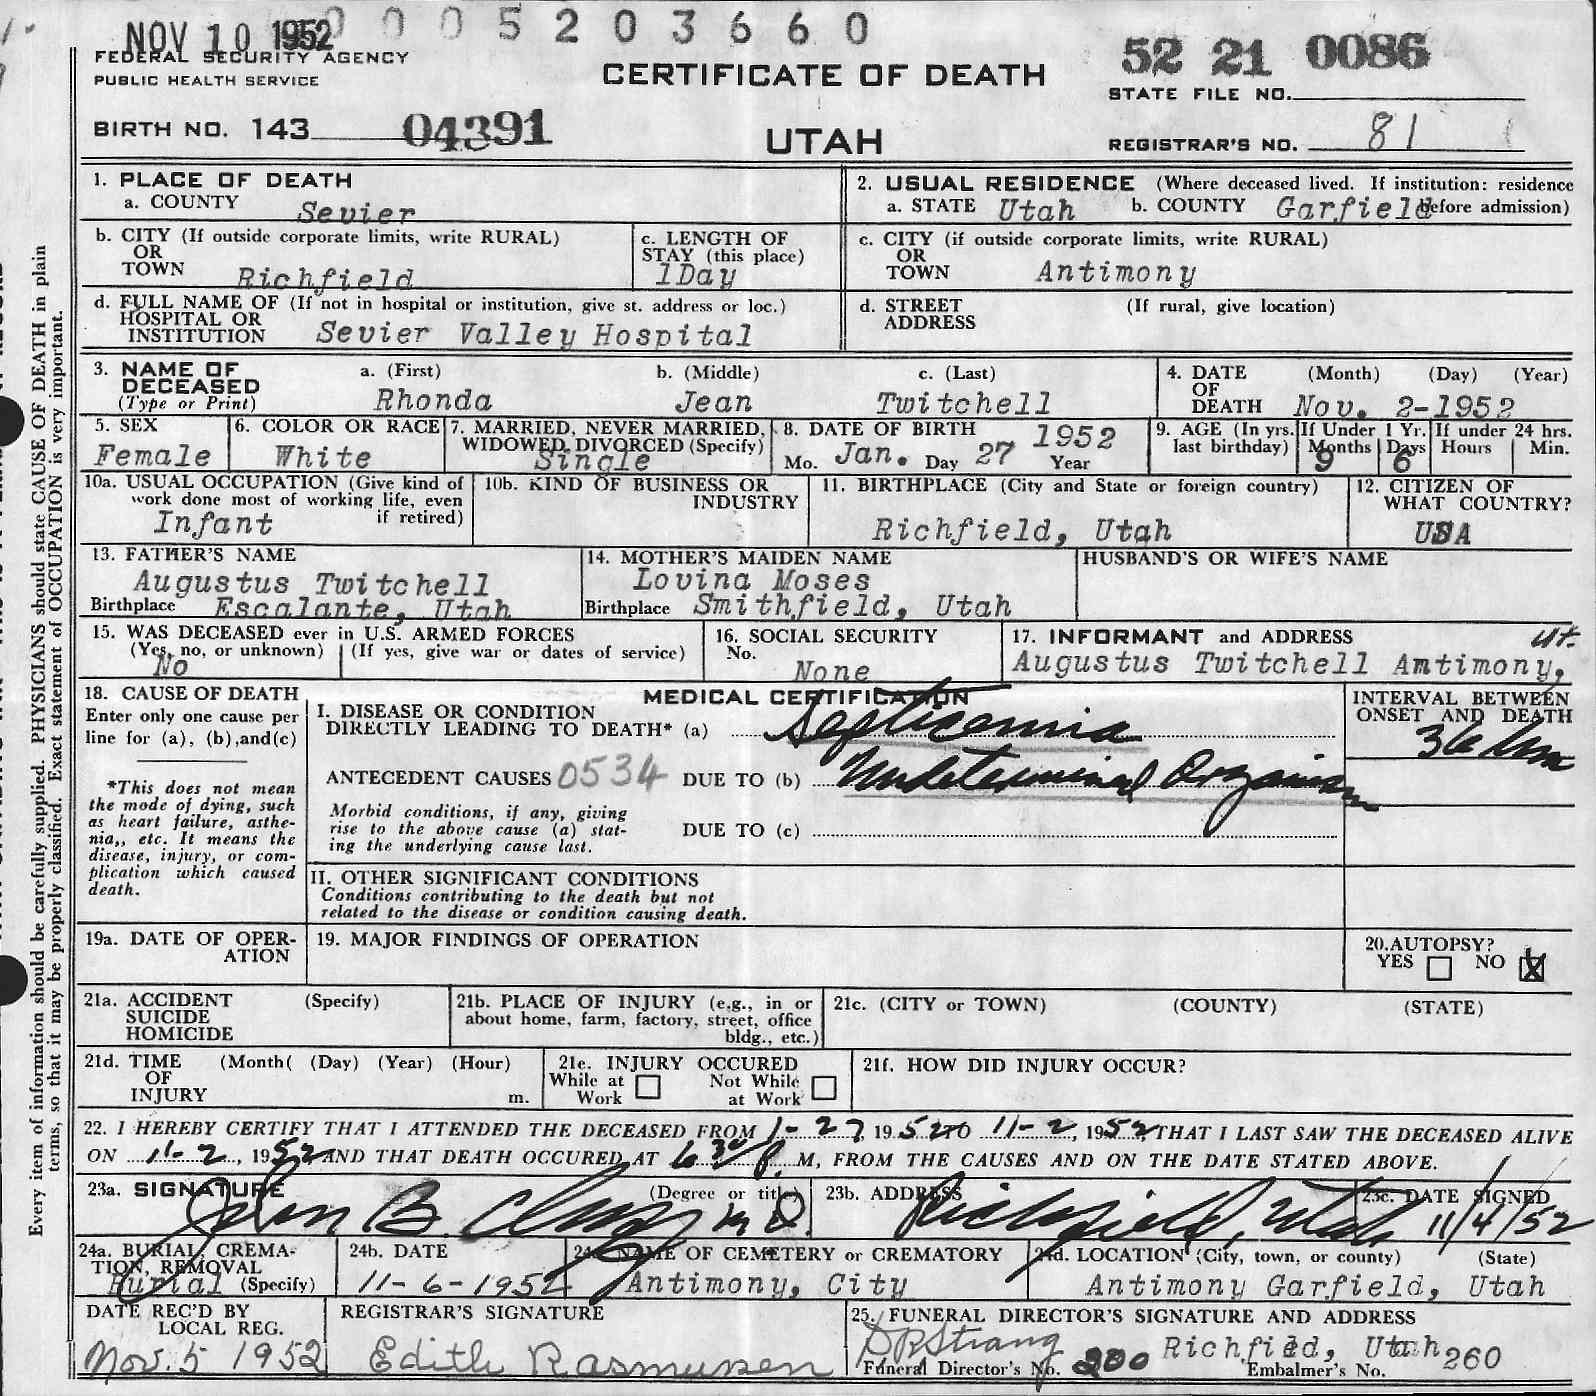 NOV 10 1952
0 0 0 5 2 0 3 6 6 0
FEDERAL SECURITY AGENCY
PUBLIC HEALTH SERVICE
CERTIFICATE OF DEATH
52 21 0086
STATE FILE NO.
BIRTH NO. 143 04391
UTAH
REGISTRAR'S NO. 81
1. PLACE OF DEATH
a. COUNTY Sevier
2. USUAL RESIDENCE (Where deceased lived. If institution: residence
a. STATE Utah b. COUNTY Garfield before admission)
b. CITY (If outside corporate limits, write RURAL)
OR
TOWN Richfield
c. LENGTH OF
STAY (this place)
1Day
c. CITY (if outside corporate limits, write RURAL)
OR
TOWN Antimony
d. FULL NAME OF (If not in hospital or institution, give st. address or loc.)
HOSPITAL OR
INSTITUTION Sevier Valley Hospital
d. STREET (If rural, give location)
ADDRESS
3. NAME OF
DECEASED
(Type or Print)
a. (First) b. (Middle) c. (Last)
Rhonda Jean Twitchell
4. DATE (Month) (Day) (Year)
OF
DEATH Nov. 2-1952
5. SEX
Female
6. COLOR OR RACE
White
7. MARRIED, NEVER MARRIED,
WIDOWED, DIVORCED (Specify)
Single
8. DATE OF BIRTH 1952
Mo. Jan. Day 27 Year
9. AGE (In yrs.
last birthday)
If Under 1 Yr.
Months Days
9 6
If under 24 hrs.
Hours Min.
10a. USUAL OCCUPATION (Give kind of
work done most of working life, even
if retired)
Infant
10b. KIND OF BUSINESS OR
INDUSTRY
11. BIRTHPLACE (City and State or foreign country)
Richfield, Utah
12. CITIZEN OF
WHAT COUNTRY?
USA
13. FATHER'S NAME
Augustus Twitchell
Birthplace Escalante, Utah
14. MOTHER'S MAIDEN NAME
Lovina Moses
Birthplace Smithfield, Utah
HUSBAND'S OR WIFE'S NAME
15. WAS DECEASED ever in U.S. ARMED FORCES
(Yes, no, or unknown) (If yes, give war or dates of service)
No
16. SOCIAL SECURITY
No.
None
17. INFORMANT and ADDRESS ut.
Augustus Twitchell Antimony,
18. CAUSE OF DEATH
Enter only one cause per
line for (a), (b),and(c)
*This does not mean
the mode of dying, such
as heart failure, asthe-
nia,, etc. It means the
disease, injury, or com-
plication which caused
death.
MEDICAL CERTIFICATION
I. DISEASE OR CONDITION
DIRECTLY LEADING TO DEATH* (a) Septicemia
ANTECEDENT CAUSES 0534 DUE TO (b) Undetermined Organism
Morbid conditions, if any, giving
rise to the above cause (a) stat-
ing the underlying cause last.
DUE TO (c)
INTERVAL BETWEEN
ONSET AND DEATH
36 hrs
II. OTHER SIGNIFICANT CONDITIONS
Conditions contributing to the death but not
related to the disease or condition causing death.
19a. DATE OF OPER-
ATION
19. MAJOR FINDINGS OF OPERATION
20.AUTOPSY?
YES NO X
21a. ACCIDENT (Specify)
SUICIDE
HOMICIDE
21b. PLACE OF INJURY (e.g., in or
about home, farm, factory, street, office
bldg., etc.)
21c. (CITY or TOWN) (COUNTY) (STATE)
21d. TIME (Month( (Day) (Year) (Hour)
OF
INJURY m.
21e. INJURY OCCURED
While at Not While
Work at Work
21f. HOW DID INJURY OCCUR?
22. I HEREBY CERTIFY THAT I ATTENDED THE DECEASED FROM 1-27, 1952 TO 11-2, 1952 THAT I LAST SAW THE DECEASED ALIVE
ON 11-2, 1952 AND THAT DEATH OCCURED AT 6 30 P. M, FROM THE CAUSES AND ON THE DATE STATED ABOVE.
23a. SIGNATURE (Degree or title)
John B. MD
23b. ADDRESS
Richfield, Utah
23c. DATE SIGNED
11/4/52
24a. BURIAL, CREMA-
TION, REMOVAL
Burial (Specify)
24b. DATE
11-6-1952
24c. NAME OF CEMETERY or CREMATORY
Antimony, City
24d. LOCATION (City, town, or county) (State)
Antimony Garfield, Utah
DATE REC'D BY
LOCAL REG.
Nov. 5 1952
REGISTRAR'S SIGNATURE
Edith Rasmussen
25. FUNERAL DIRECTOR'S SIGNATURE AND ADDRESS
Richfield, Utah
Funeral Director's No. 200 Embalmer's No. 260
Every item of information should be carefully supplied. PHYSICIANS should state CAUSE OF DEATH in plain
terms, so that it may be properly classified. Exact statement of OCCUPATION is very important.